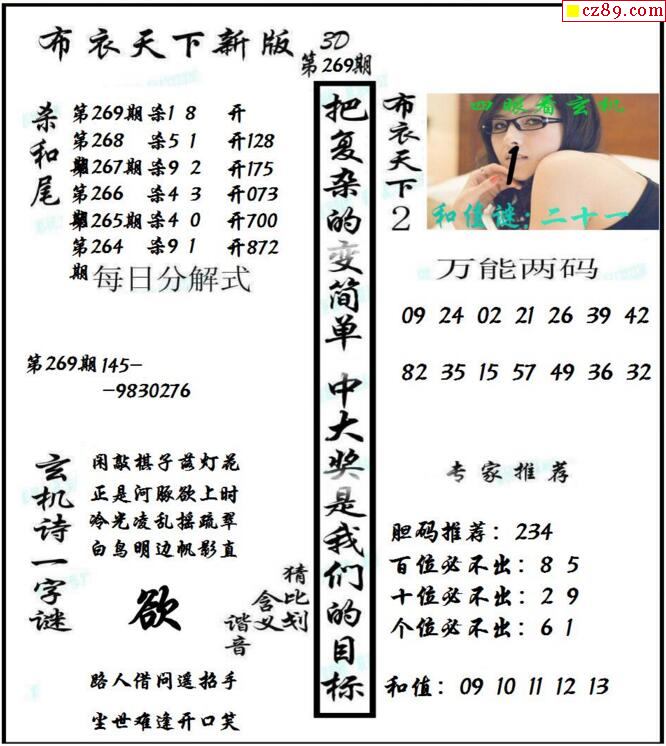 cz89.com
布衣天下新版 3D
第269期
杀和尾
第269期 杀1 8 开
第268期 杀5 1 开128
第267期 杀9 2 开175
第266期 杀4 3 开073
第265期 杀4 0 开700
第264期 杀9 1 开872
每日分解式
第269期 145-
-9830276
玄机诗一字谜
闲敲棋子落灯花
正是河豚欲上时
冷光凌乱摇疏翠
白鸟明边帆影直
欲
猜比划
含义
谐音
路人借问遥招手
尘世难逢开口笑
把复杂的变简单 中大奖是我们的目标
布衣天下2
四眼看玄机
1
和值谜:二十一
万能两码
09 24 02 21 26 39 42
82 35 15 57 49 36 32
专家推荐
胆码推荐:234
百位必不出:8 5
十位必不出:2 9
个位必不出:6 1
和值:09 10 11 12 13